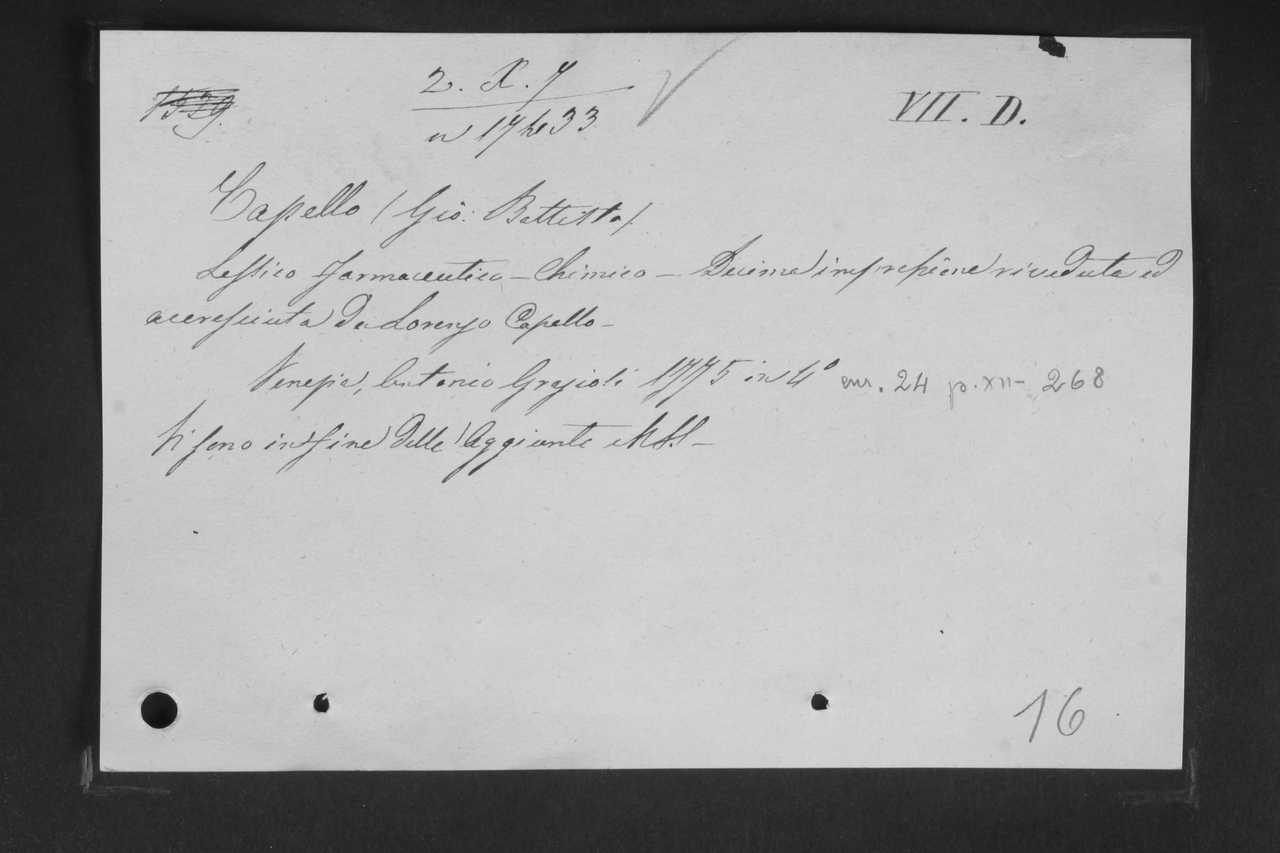 2. X. 7
VII. D.
Capello (Gio: Battista)
Lessico farmaceutico-Chimico - Decima impressione riveduta ed
accresciuta da Lorenzo Capello -
Venezia, Antonio Grazioli 1775 in 4° cm. 24 p. XII- 268
Vi sono in fine delle Aggiunte MSS -
16